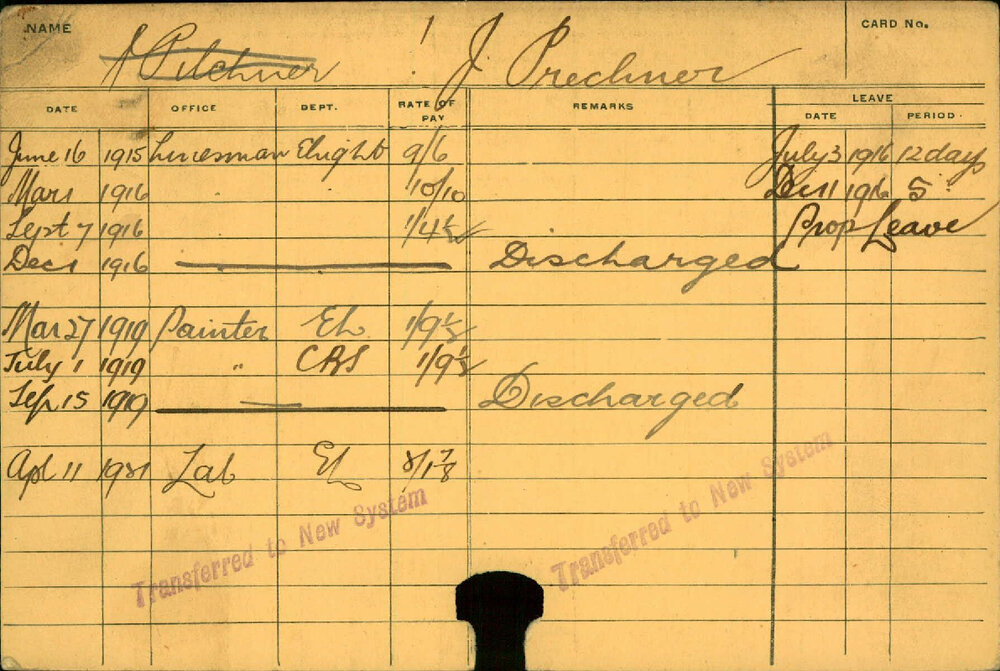 NAME CARD No.
J Pilchner J Prechner
DATE OFFICE DEPT. RATE OF PAY REMARKS LEAVE
DATE PERIOD.
June 16 1915 Linesman Elight 9/6 July 3 1916 12 days
Mar 1 1916 10/10 Dec 1 1916 5 "
Sept 7 1916 1/4½ Prop Leave
Dec 1 1916 Discharged
Mar 27 1919 Painter EL 1/9½
July 1 1919 " 1/9½
Sep 15 1919 Discharged
Apl 11 1921 Lab EL
Transferred to New System
Transferred to New System